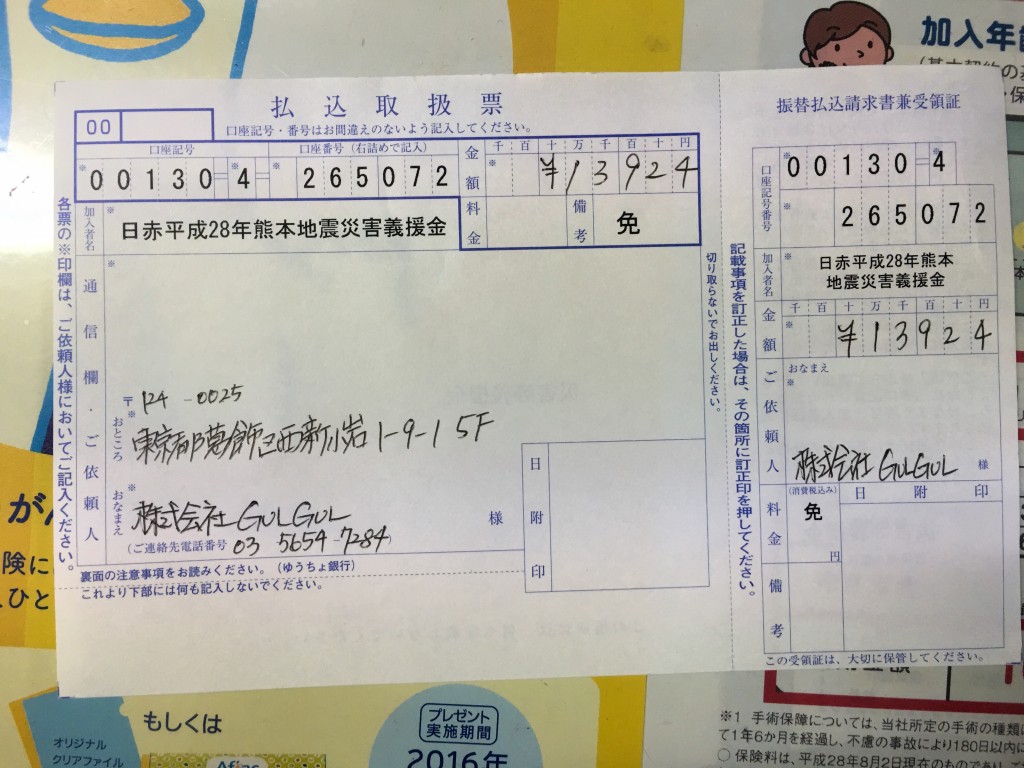 加入年齢
払込取扱票
00
口座記号・番号はお間違えのないよう記入してください。
口座記号
口座番号(右詰めで記入)
金額
千 百 十 万 千 百 十 円
※ 00130 ※ 4
265072
※ ¥13924
加入者名
※
日赤平成28年熊本地震災害義援金
料金
備考
免
各票の※印欄は、ご依頼人様においてご記入ください。
通信欄・ご依頼人
※
〒 124-0025
おところ
※
東京都葛飾区西新小岩1-9-1 5F
おなまえ
※
株式会社GULGUL
様
(ご連絡先電話番号 03 5654 7284)
日附印
裏面の注意事項をお読みください。(ゆうちょ銀行)
これより下部には何も記入しないでください。
切り取らないでお出しください。
記載事項を訂正した場合は、その箇所に訂正印を押してください。
振替払込請求書兼受領証
口座記号番号
※ 00130 ※ 4
※ 265072
加入者名
※
日赤平成28年熊本
地震災害義援金
金額
千 百 十 万 千 百 十 円
※ ¥13924
ご依頼人
おなまえ
※
株式会社GULGUL
様
(消費税込み)
料金
免
円
日附印
備考
この受領証は、大切に保管してください。
もしくは
オリジナル
クリアファイル
Aflac
プレゼント
実施期間
2016年
※1 手術保障については、当社所定の手術の種類に
て1年6か月を経過し、不慮の事故により180日以内に
○ 保険料は、平成28年8月2日現在のものであり、ご